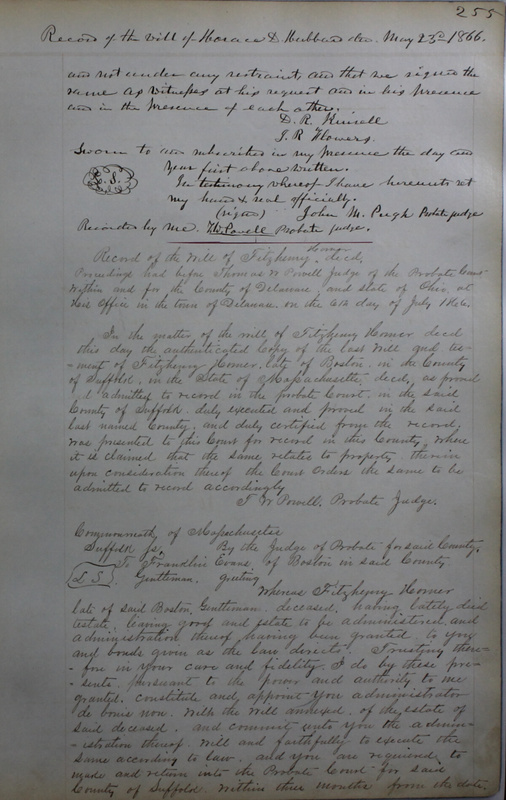 255
Record of the Will of Horace D. Hubbard dec. May 23rd 1866.
and not under any restraint, and that we signed the
same as witnesses at his request and in his presence
and in the presence of each other.
D. R.
J. R. Flowers
Sworn to and subscribed in my presence the day and
year first above written.
L. S.
In testimony whereof I have hereunto set
my hand & seal officially.
(signed) John M. Pugh Probate judge
Recorded by me. T. W. Powell Probate judge.
Record of the Will of Fitzhenry Homer decd.
Proceedings had before Thomas W Powell Judge of the Probate Court
within and for the County of Delaware, and State of Ohio, at
his Office in the town of Delaware. on the 6th day of July 1866.
In the matter of the will of Fitzhenry Homer decd
this day the authenticated Copy of the last Will and tes-
-ment of Fitzhenry Homer, late of Boston. in the County
of Suffolk, in the State of Massachusetts, decd, as proved
admitted to record in the probate Court. in the said
County of Suffolk. duly executed and proved in the said
last named County, and duly certified from the record,
was presented to this Court for record in this County, where
it is claimed that the same relates to property therein
upon consideration thereof the Court orders the same to be
admitted to record accordingly
T. W Powell. Probate Judge.
Commonwealth of Massachusetts
Suffolk ss. By the Judge of Probate for said County,
L. S.
To Franklin Evans, of Boston in said County
Gentleman. greeting
Whereas Fitzhenry Homer
late of said Boston, Gentleman. deceased, having lately died
testate, leaving good and estate to be administered, and
administration thereof having been granted to you
and bonds given as the law directs. Trusting there-
-fore in your care and fidelity. I do by these pre-
-sents. pursuant to the power and authority to me
granted, constitute and appoint you administrator
de bonis non. With the Will annexed, of the estate of
said deceased, and commit unto you the admin-
-istration thereof. Will and faithfully to execute the
same according to law. and you are required to
make and return into the Probate Court for said
County of Suffolk. Within three months from the date,